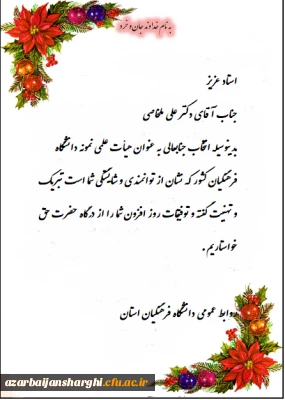 به نام خداوند جان و خرد
استاد عزیز
جناب آقای دکتر علی ملخاصی
بدینوسیله انتخاب جنابعالی به عنوان هیأت علمی نمونه دانشگاه
فرهنگیان کشور که نشان از توانمندی و شایستگی شما است تبریک
و تهنیت گفته و توفیقات روز افزون شما را از درگاه حضرت حق
خواستاریم .
روابط عمومی دانشگاه فرهنگیان استان
azarbaijansharghi.cfu.ac.ir